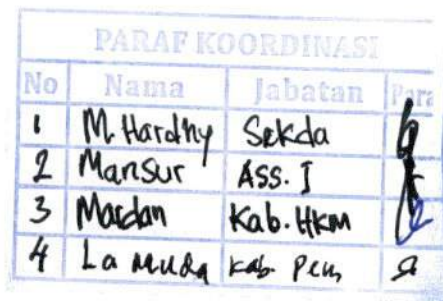 PARAF KOORDINASI
No Nama Jabatan Para
1 M. Hardhy Sekda
2 Mansur ASS. I
3 Mardan Kab. HKM
4 La Muda Kab. Pem